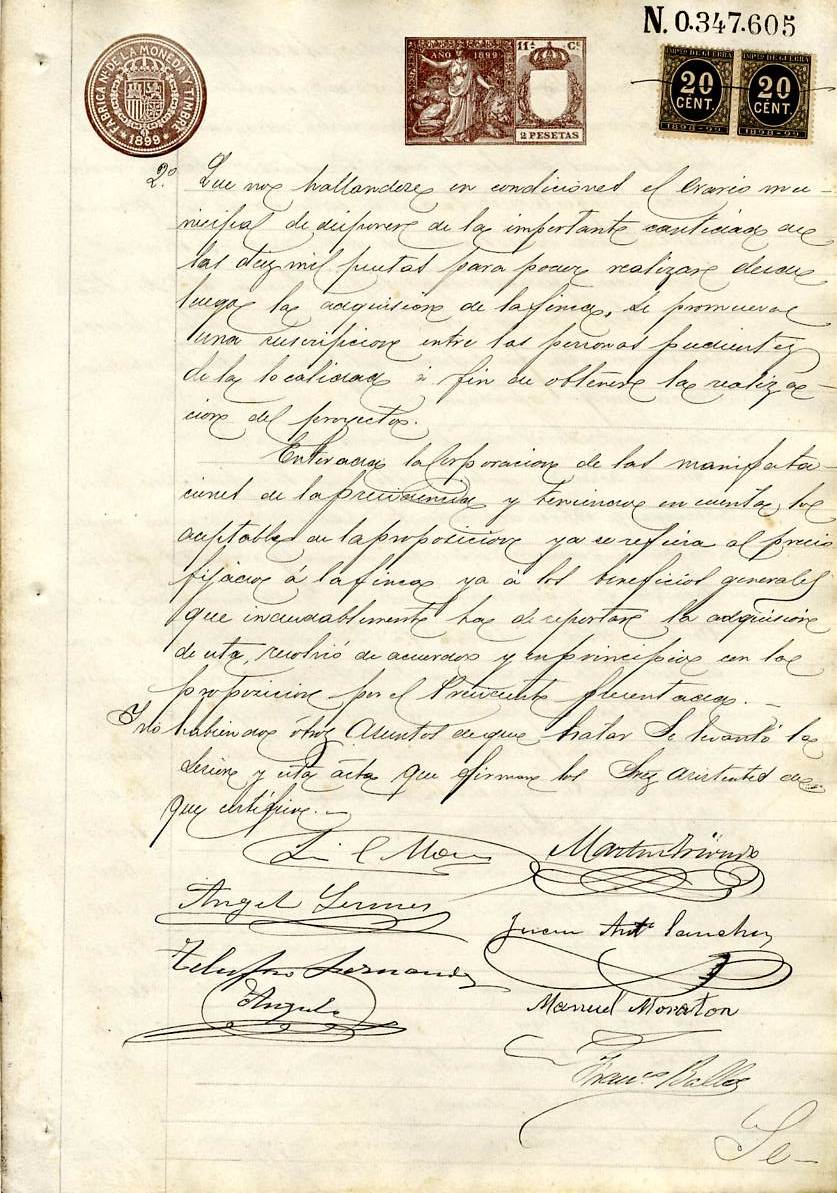 N. 0.347.605
FABRICA NAL DE LA MONEDA Y TIMBRE
* 1899 *
AÑO 1899
11ª Cª
2 PESETAS
IMPTO DE GUERRA
20
CENT.
1898-99
IMPTO DE GUERRA
20
CÉNT.
1898-99
2.º Que no hallandose en condiciones el Erario mu-
nicipal de disponer de la importante cantidad de
las diez mil pesetas para poder realizar desde
luego la adquisicion de la finca, se promueva
una suscripcion entre las personas pudientes
de la localidad á fin de obtener la realiza-
cion del proyecto.
Enterada la Corporacion de las manifesta-
ciones de la presidencia y teniendo en cuenta lo
aceptable de la proposicion ya se refiera al precio
fijado á la finca ya á los beneficios generales
que indudablemente ha de reportar la adquisicion
de esta, resolvió de acuerdo y en principio con la
proposicion por el Presidente presentada.
Y no habiendo otros asuntos de que tratar se levantó la
sesion y esta acta que firman los Sres asistentes de
que certifico.
Martin
Angel
Juan Antº Sanchez
Telesforo Hernandez
Angulo
Manuel Moraton
Francº
Se-